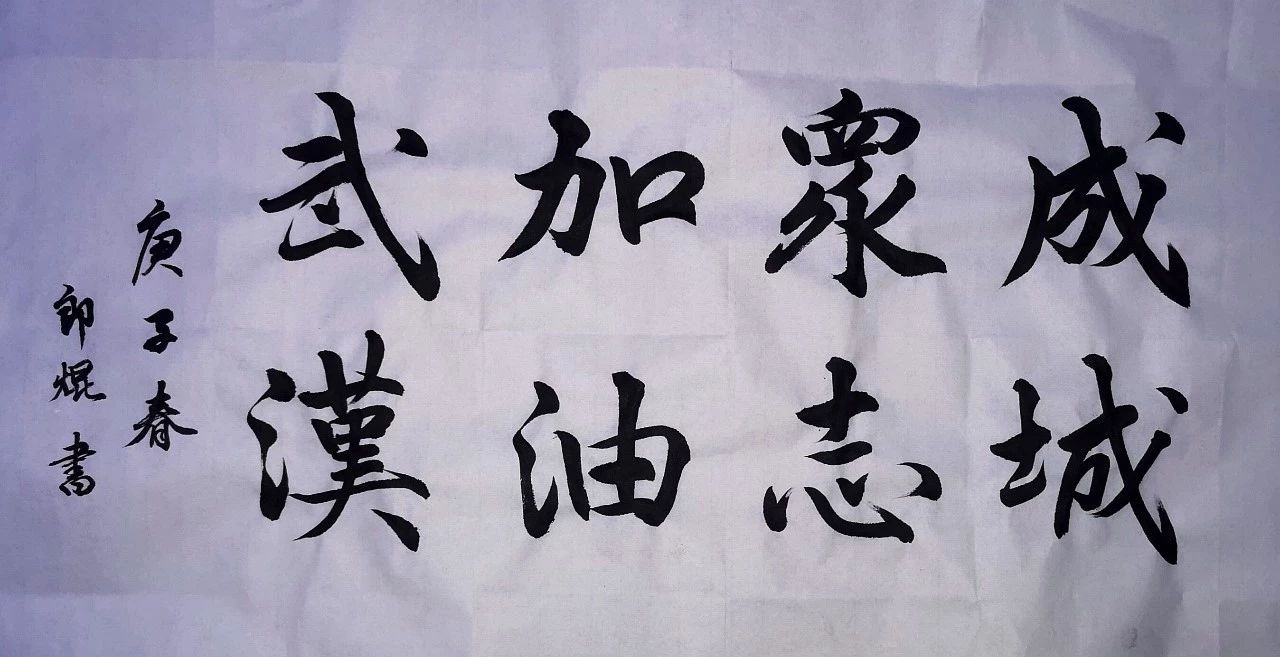 武漢
加油
衆志
成城
庚子春
郎焜書